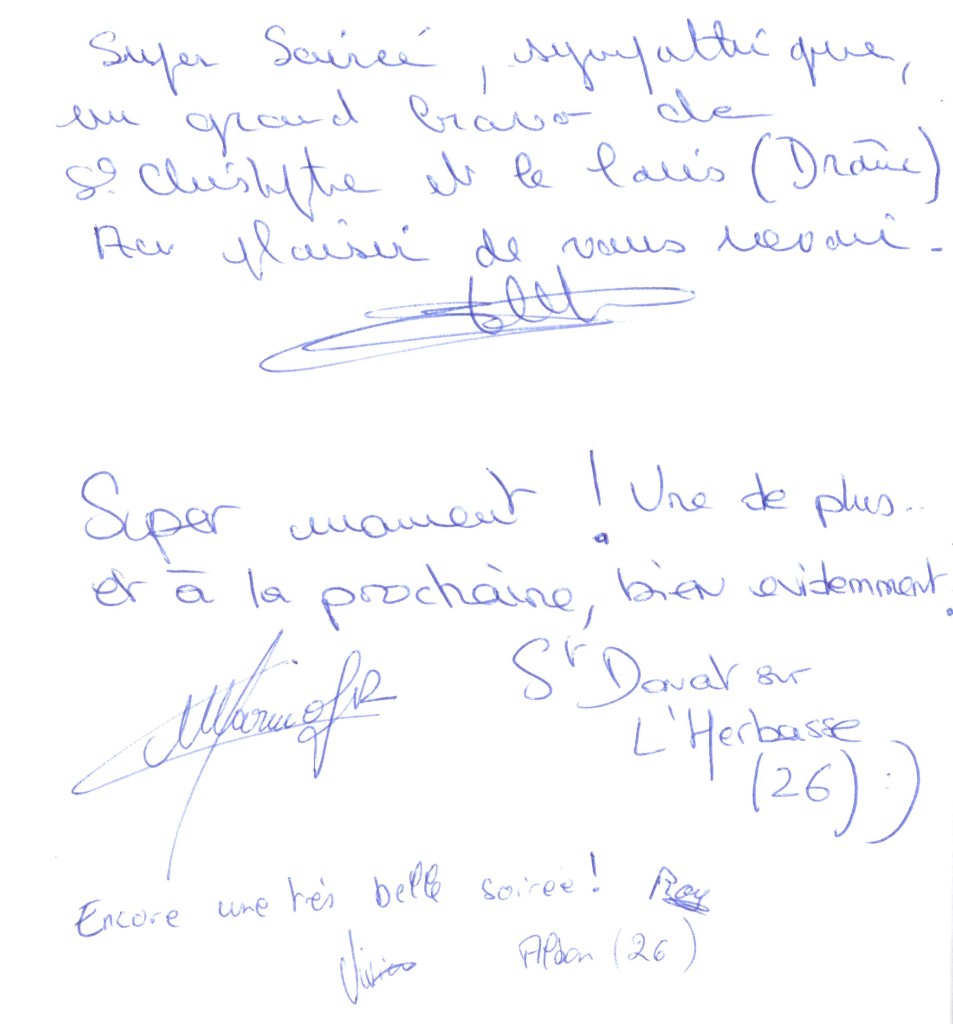 Super Soireé, sympathique,
un grand bravo de
St Christophe et le Laris (Drôme)
Au plaisir de vous revoir.
Super moment ! Une de plus..
et à la prochaine, bien evidemment.
St Donat sur
L'Herbasse
(26) :)
Encore une très belle soirée !
Albon (26)